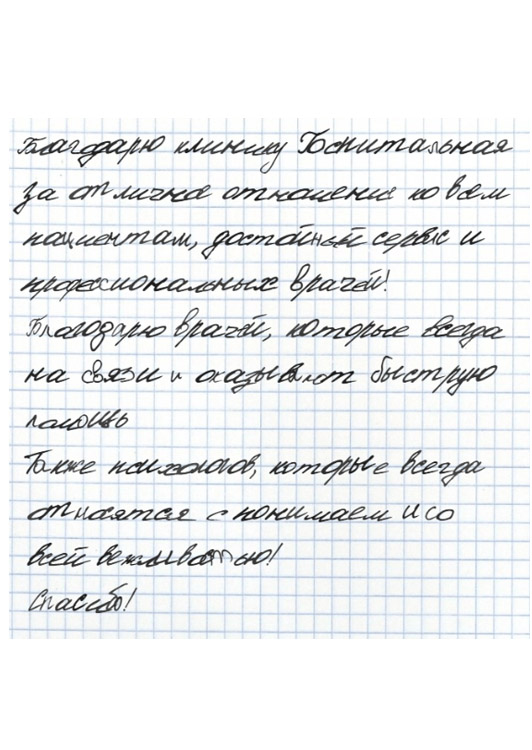 Благодарю клинику Госпитальная
за отличное отношение ко всем
пациентам, достойный сервис и
профессиональных врачей!
Благодарю врачей, которые всегда
на связи и оказывают быструю
помощь
Также психологов, которые всегда
относятся с пониманием и со
всей вежливостью!
Спасибо!